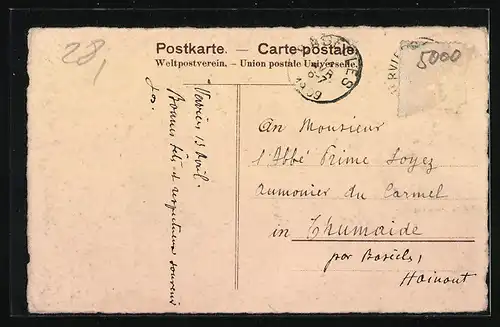 28,
Postkarte. — Carte postale.
Weltpostverein. — Union postale Universelle.
5000
13 Avril.
Bonnes fêtes et respectueux souvenir
An Monsieur
l'Abbé Prime Soyez
aumonier du Carmel
in Thumaide
par Basècles,
Hainaut